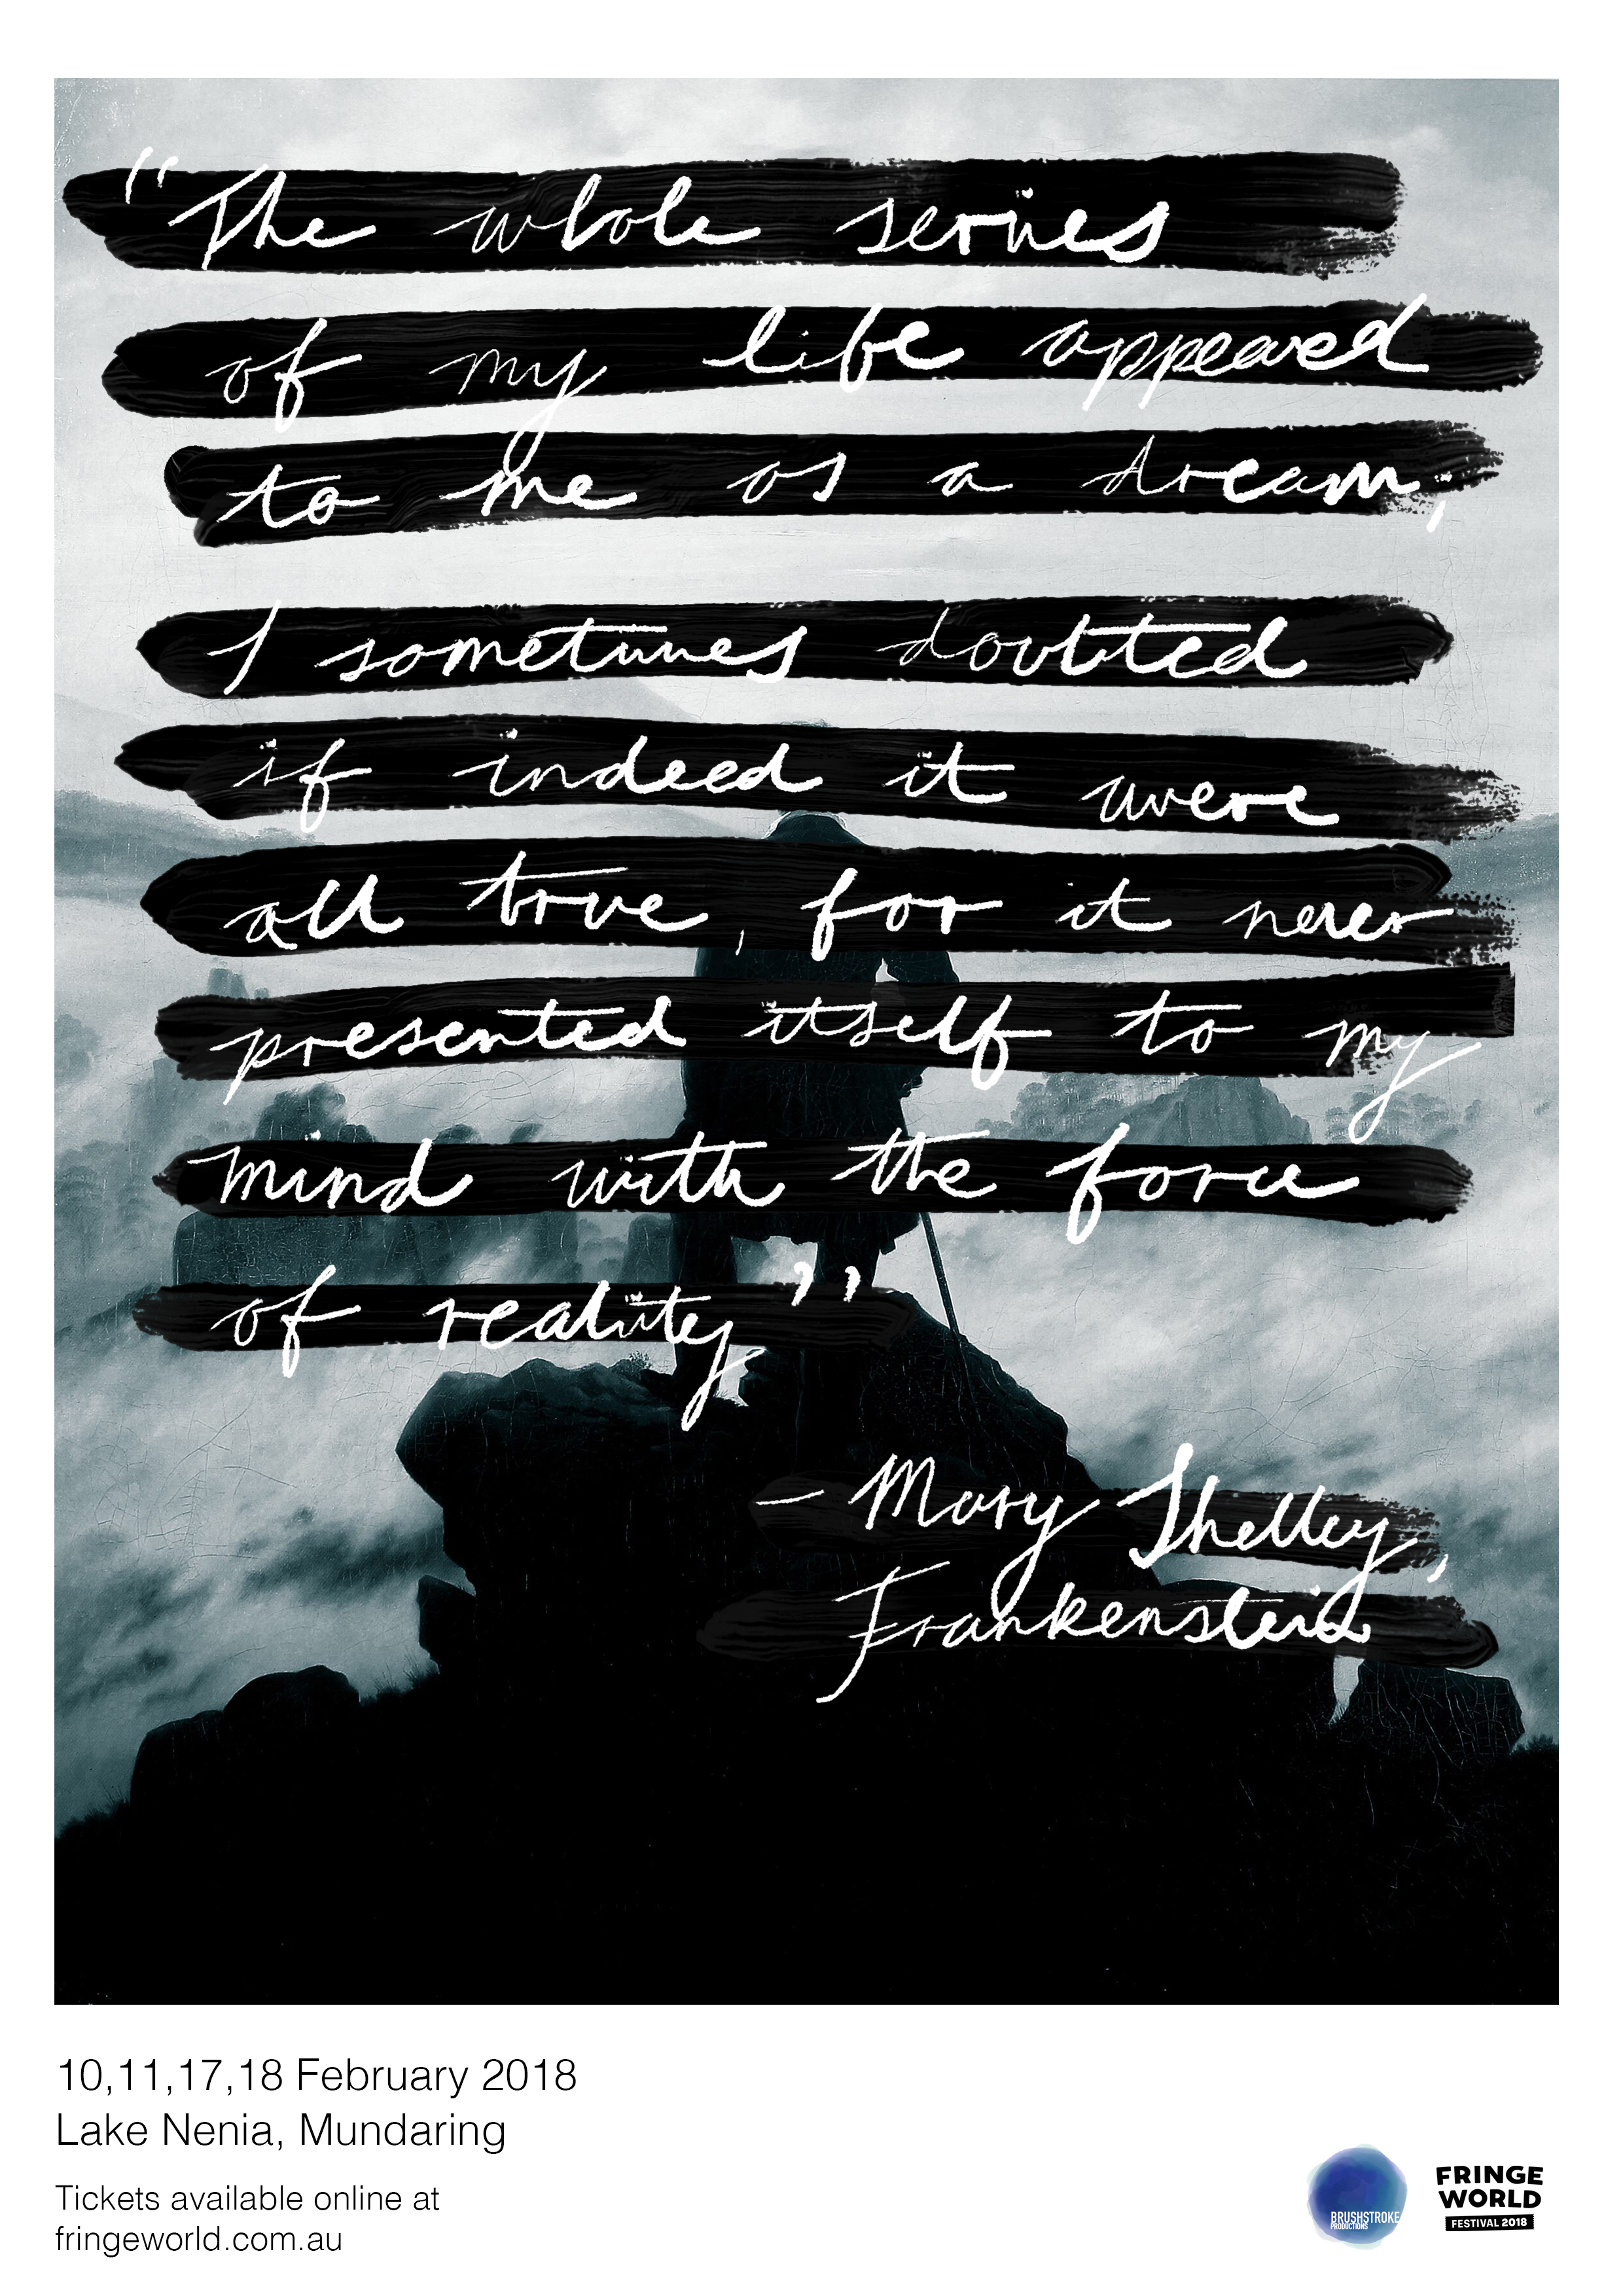 "The whole series
of my life appeared
to me as a dream;
I sometimes doubted
if indeed it were
all true, for it never
presented itself to my
mind with the force
of reality"
- Mary Shelley,
Frankenstein
10,11,17,18 February 2018
Lake Nenia, Mundaring
Tickets available online at
fringeworld.com.au
BRUSHSTROKE
PRODUCTIONS
FRINGE
WORLD
FESTIVAL 2018